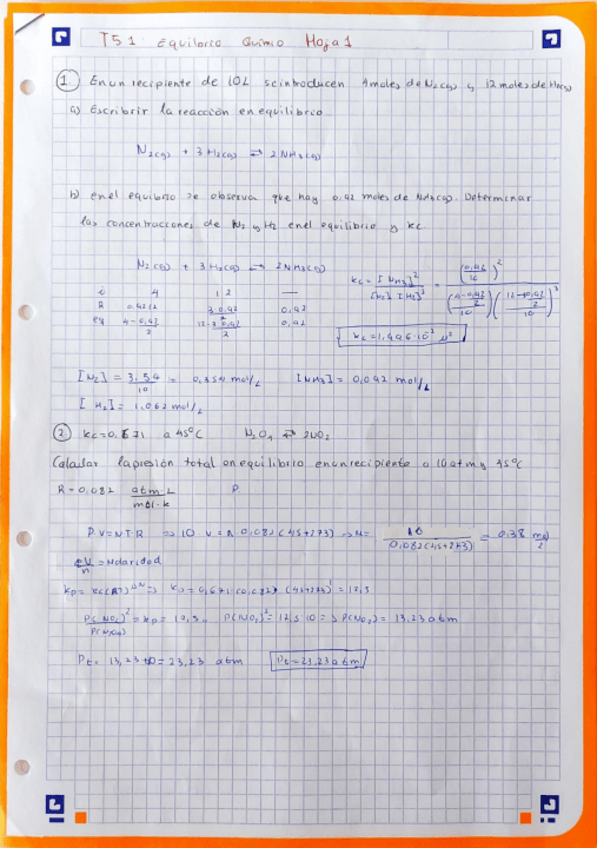 T5.1 Equilibrio Químio Hoja 1
1 En un recipiente de 10L se introducen 4 moles de N2(g) y 12 moles de H2(g)
a) Escribrir la reacción en equilibrio
N2(g) + 3H2(g) ⇄ 2NH3(g)
b) en el equilibrio se observa que hay 0,92 moles de NH3(g). Determinar
las concentracciones de N2 y H2 en el equilibrio y KC.
N2(g) + 3H2(g) ⇄ 2NH3(g)
i 4 12 —
R 0,92/2 3·0,92/2 0,92
eq 4-0,92/2 12-3·0,92/2 0,92
Kc = [NH3]²/[N2][H2]³ =
Kc = 1,996·10⁻² M²
[N2] = 3,54/10 = 0,354 mol/L [NH3] = 0,092 mol/L
[H2] = 1,062 mol/L
2 Kc=0,671 a 45ºC N2O4 ⇄ 2NO2
Calcular la presión total en equilibrio en un recipiente a 10 atm y 45ºC
R = 0,082 atm·L/mol·k P
P·V=N·T·R ⇒ 10·V=n·0,082(45+273) ⇒ M= 10/0,082(45+273) = 0,38 mol/L
= Molaridad
Kp = Kc(RT)^ΔN ⇒ Kp = 0,671(0,082)(45+273)¹ = 17,5
P(NO2)²/P(N2O4) = Kp = 17,5 P(NO2)² = 17,5·10 ⇒ P(NO2) = 13,23 atm
Pt = 13,23+10 = 23,23 atm Pt=23,23 atm